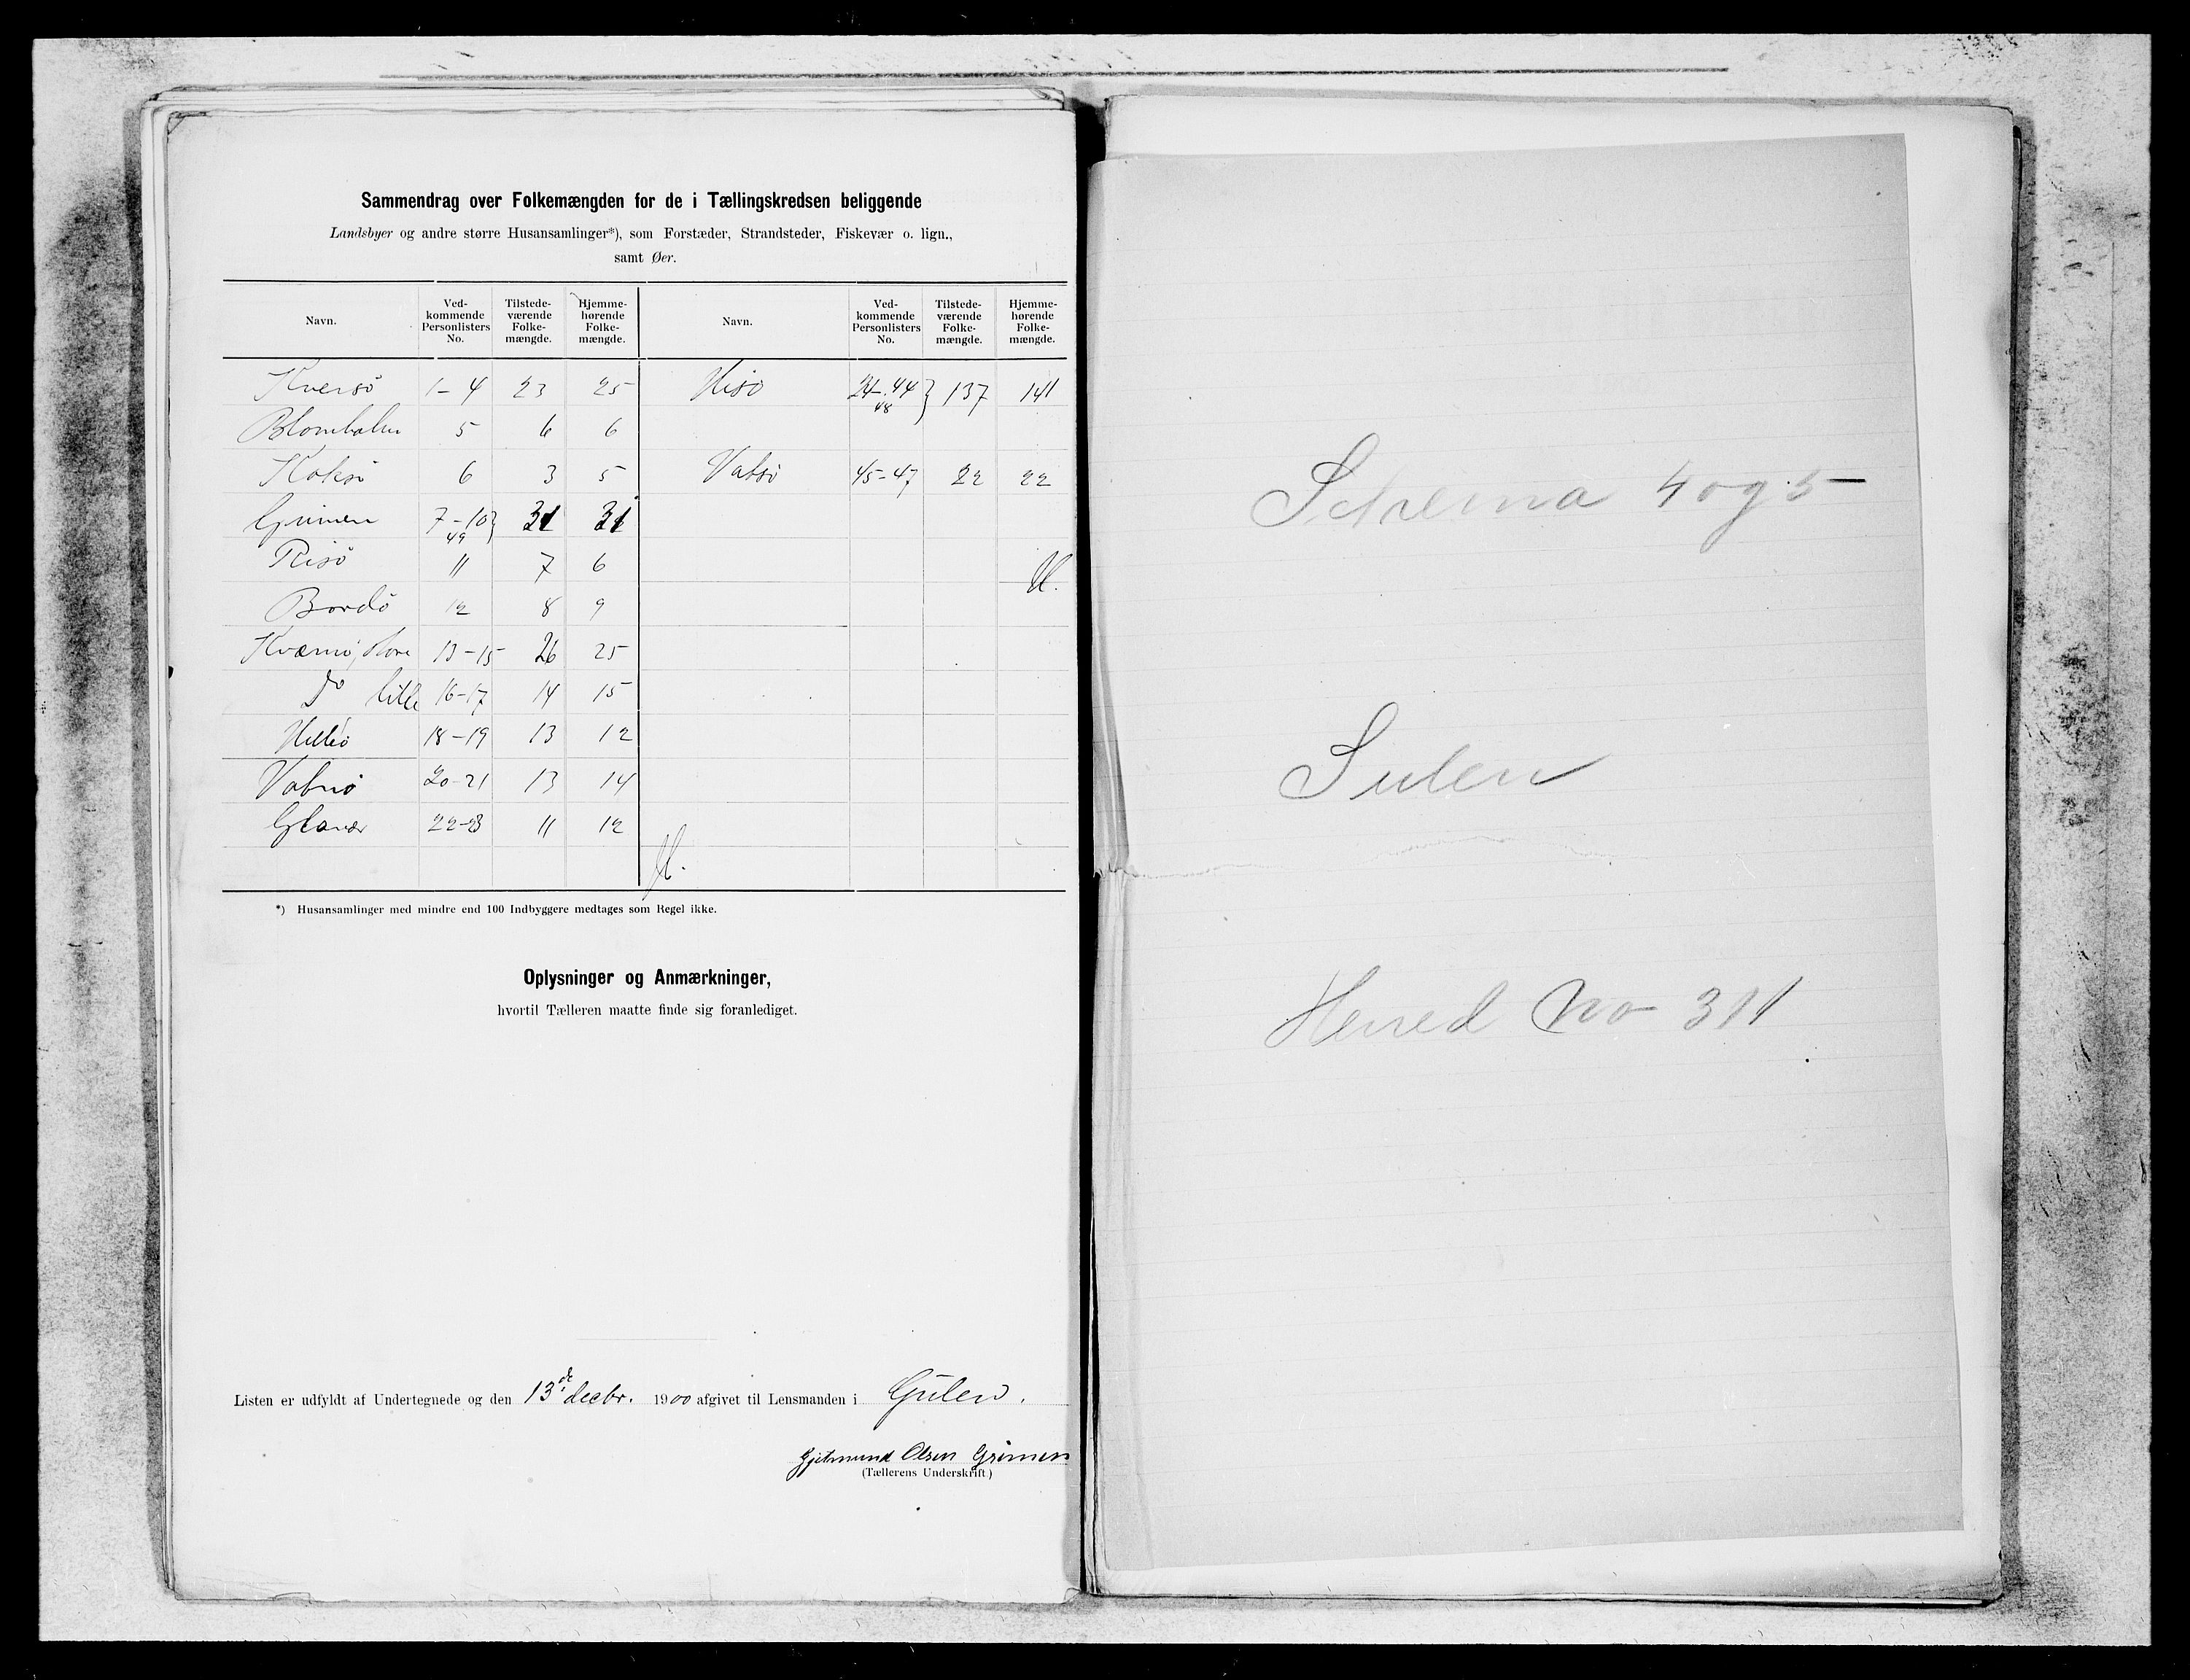 Sammendrag over Folkemængden for de i Tællingskredsen beliggende
Landsbyer og andre større Husansamlinger*), som Forstæder, Strandsteder, Fiskevær o. lign.,
samt Øer.
Navn. Ved-kommende Personlisters No. Tilstede-værende Folke-mængde. Hjemme-hørende Folke-mængde. Navn. Ved-kommende Personlisters No. Tilstede-værende Folke-mængde. Hjemme-hørende Folke-mængde.
Kversö 1-4 23 25 Hisö 24-44 48 } 137 141
Blomholm 5 6 6
Koksö 6 3 5 Vatsö 45-47 22 22
Grimen 7-10 49 } 31 31
Risö 11 7 6
Bordö 12 8 9
Kværnö, store 13-15 26 25
Do lille 16-17 14 15
Hillö 18-19 13 12
Vatnö 20-21 13 14
Glavær 22-23 11 12
*) Husansamlinger med mindre end 100 Indbyggere medtages som Regel ikke.
Oplysninger og Anmærkninger,
hvortil Tælleren maatte finde sig foranlediget.
Listen er udfyldt af Undertegnede og den 13de decbr. 1900 afgivet til Lensmanden i Gulen.
Gjetmund Olsen Grimen
(Tællerens Underskrift)
Schema 4 og 5
Sulen
Herred No 311